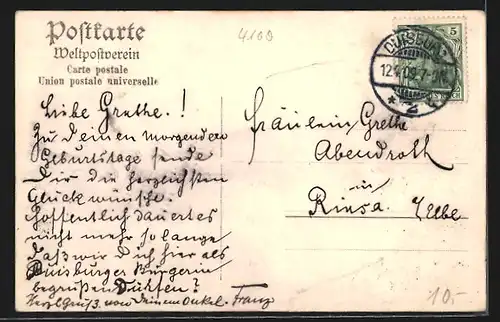 Postkarte
Weltpostverein
Carte postale
Union postale universelle
4100
5
DUISBURG
Liebe Grethe.!
Zu Deinen morgenden
Geburtstage sende
Dir die herzlichsten
Glückwünsche.
Hoffentlich dauert es
nicht mehr so lange
daß wir Dich hier als
Duisburger Bürgerin
begrüßen
Herzl Gruß von Deinem Onkel. Franz
Fräulein Grethe
Abendroth
in
Riesa. Elbe
10.-